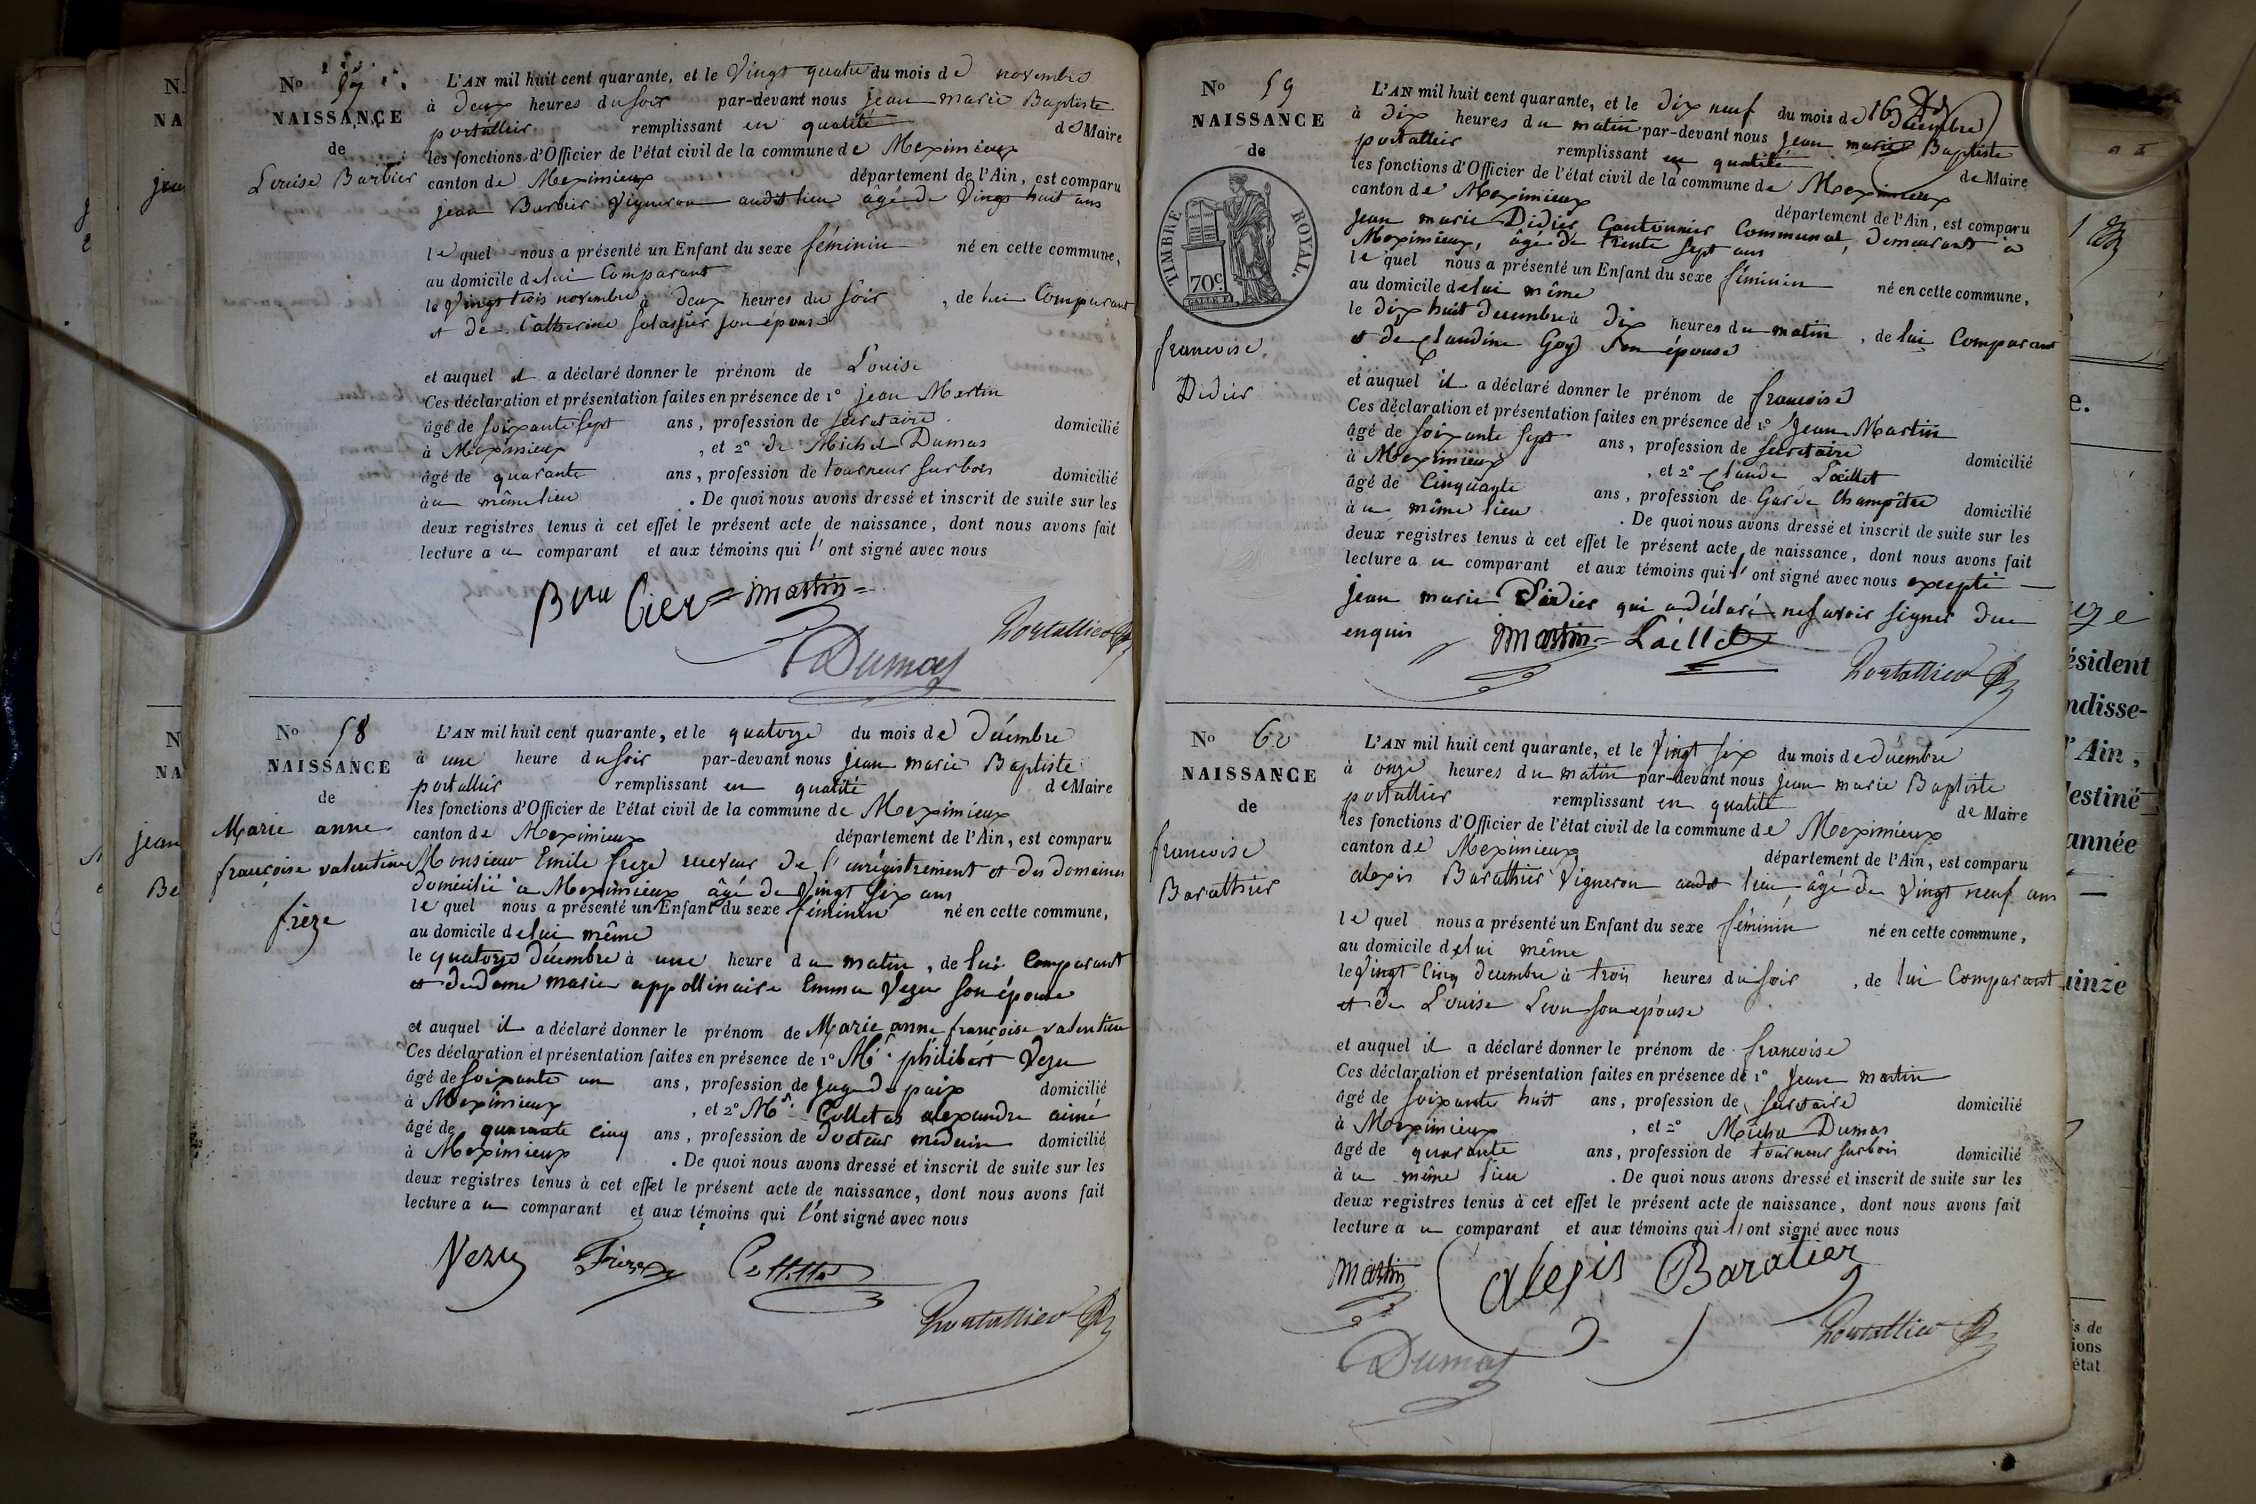 No 57
NAISSANCE
de
Louise Barbier
L'AN mil huit cent quarante, et le Vingt quatre du mois de novembre
à deux heures du soir par-devant nous jean marie Baptiste
portallier remplissant en qualité de Maire
les fonctions d'Officier de l'état civil de la commune de Meximieux
canton de Meximieux département de l'Ain, est comparu
jean Barbier Vigneron audit lieu âgé de Vingt huit ans
le quel nous a présenté un Enfant du sexe féminin né en cette commune,
au domicile de lui Comparant
le Vingt trois novembre à deux heures du soir, de lui Comparant
et de Catherine son épouse
et auquel il a déclaré donner le prénom de Louise
Ces déclaration et présentation faites en présence de 1º jean Martin
âgé de soixante sept ans, profession de secretaire domicilié
à Meximieux, et 2º de Michel Dumas
âgé de quarante ans, profession de tourneur sur bois domicilié
à u même lieu. De quoi nous avons dressé et inscrit de suite sur les
deux registres tenus à cet effet le présent acte de naissance, dont nous avons fait
lecture a u comparant et aux témoins qui l' ont signé avec nous
martin
Portallier
Dumas
No 58
NAISSANCE
de
Marie anne
françoise valentine
frèze
L'AN mil huit cent quarante, et le quatorze du mois de décembre
à une heure du soir par-devant nous jean marie Baptiste
portallier remplissant en qualité de Maire
les fonctions d'Officier de l'état civil de la commune de Meximieux
canton de Meximieux département de l'Ain, est comparu
Monsieur Emile freze receveur de l'enrégistrement et des domaines
domicilié à Meximieux âgé de Vingt six ans
le quel nous a présenté un Enfant du sexe féminin né en cette commune,
au domicile de lui même
le quatorze décembre à une heure du matin, de lui Comparant
et de dame marie appollinaire Emma Vezu son épouse
et auquel il a déclaré donner le prénom de Marie anne françoise valentine
Ces déclaration et présentation faites en présence de 1º Mr philibert Vezu
âgé de soixante un ans, profession de juge de paix domicilié
à Meximieux, et 2º Mr Colletas alexandre aimé
âgé de quarante cinq ans, profession de docteur médecin domicilié
à Meximieux. De quoi nous avons dressé et inscrit de suite sur les
deux registres tenus à cet effet le présent acte de naissance, dont nous avons fait
lecture a u comparant et aux témoins qui l'ont signé avec nous
Vezu
Portallier
No 59
NAISSANCE
de
TIMBRE ROYAL.
70 c.
francoise
Didier
L'AN mil huit cent quarante, et le dix neuf du mois de décembre
à dix heures du matin par-devant nous jean marie Baptiste
portallier remplissant en qualité de Maire
les fonctions d'Officier de l'état civil de la commune de Meximieux
canton de Meximieux département de l'Ain, est comparu
jean marie Didier Cantonnier Communal, demeurant à
Meximieux, âgé de trente sept ans
le quel nous a présenté un Enfant du sexe féminin né en cette commune,
au domicile de lui même
le dix huit decembre à dix heures du matin, de lui Comparant
et de Claudine Goy son épouse
et auquel il a déclaré donner le prénom de francoise
Ces déclaration et présentation faites en présence de 1º Jean Martin
âgé de soixante sept ans, profession de secretaire domicilié
à Meximieux, et 2º Claude Laillet
âgé de Cinquante ans, profession de Garde Champêtre domicilié
à u même lieu. De quoi nous avons dressé et inscrit de suite sur les
deux registres tenus à cet effet le présent acte de naissance, dont nous avons fait
lecture a u comparant et aux témoins qui l' ont signé avec nous excepté
jean marie Didier qui a déclaré ne savoir signer de ce
enquis
martin Laillet
Portallier
No 60
NAISSANCE
de
francoise
Barathier
L'AN mil huit cent quarante, et le Vingt six du mois de décembre
à onze heures du matin par-devant nous jean marie Baptiste
portallier remplissant en qualité de Maire
les fonctions d'Officier de l'état civil de la commune de Meximieux
canton de Meximieux département de l'Ain, est comparu
alexis Barathier Vigneron audit lieu âgé de Vingt neuf ans
le quel nous a présenté un Enfant du sexe féminin né en cette commune,
au domicile de lui même
le Vingt Cinq decembre à trois heures du soir, de lui Comparant
et de Louise son épouse
et auquel il a déclaré donner le prénom de francoise
Ces déclaration et présentation faites en présence de 1º Jean martin
âgé de soixante huit ans, profession de secretaire domicilié
à Meximieux, et 2º Michel Dumas
âgé de quarante ans, profession de tourneur sur bois domicilié
à u même lieu. De quoi nous avons dressé et inscrit de suite sur les
deux registres tenus à cet effet le présent acte de naissance, dont nous avons fait
lecture a u comparant et aux témoins qui l' ont signé avec nous
martin Alexis Baratier
Portallier
Dumas